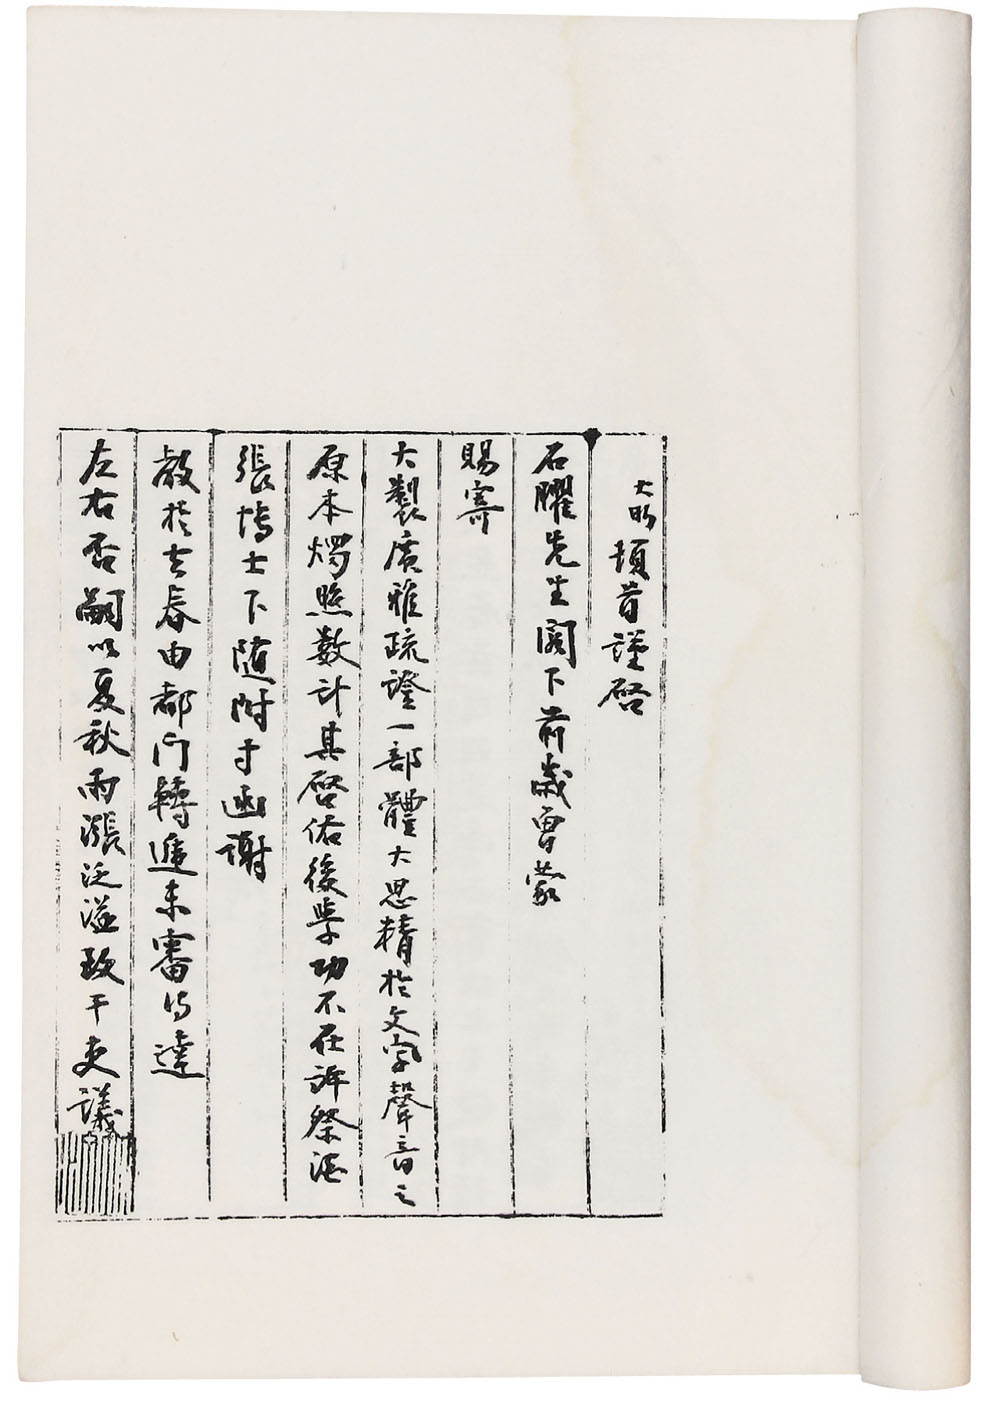 大昕頓首謹啓
石臞先生閣下前歲曾蒙
賜寄
大製廣雅疏證一部體大思精於文字聲音之
原本燭照數計其啓佑後學功不在許祭酒
張博士下隨附寸函謝
教於去春由都門轉遞未審得達
左右否嗣以夏秋雨漲泛溢致干吏議